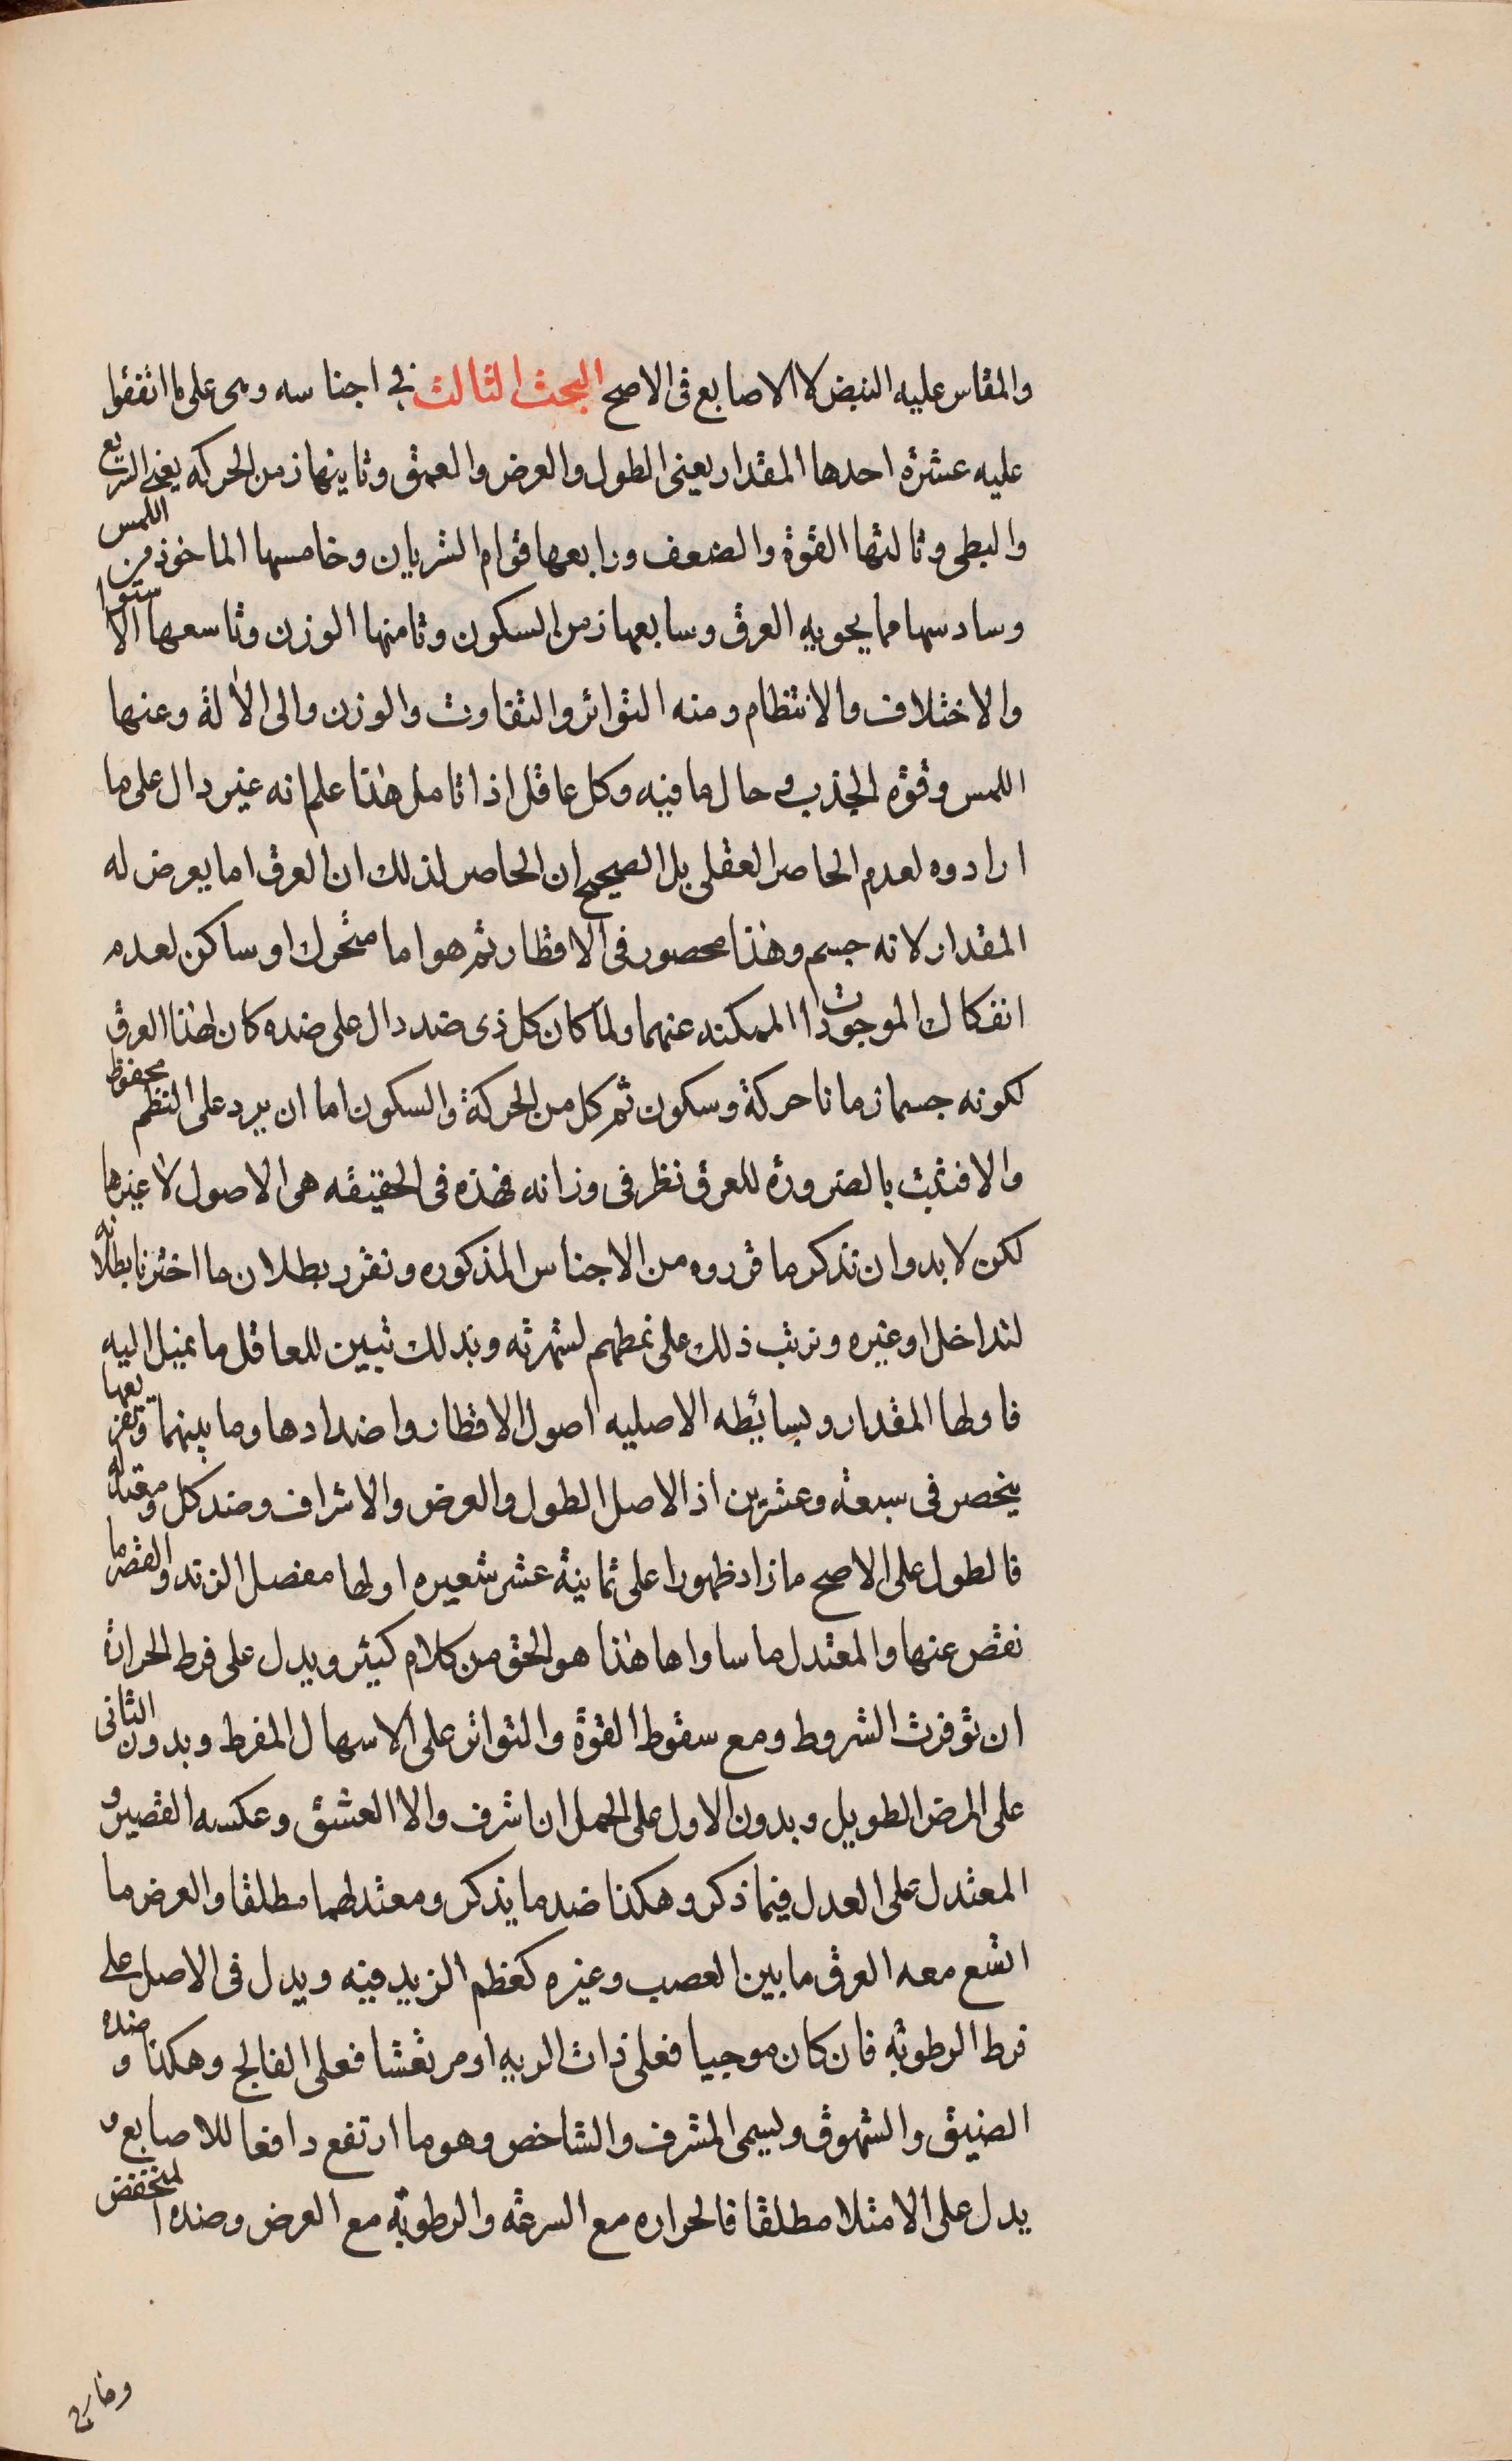 والمقاس عليه النبض لا الاصابع فى الاصح البحث الثالث فى اجناسه وهى على ما اتفقوا
عليه عشرة احدها المقدار يعنى الطول والعرض والعمق وثانيها زمن الحركه يعنى السريع
والبطى وثالثها القوة والضعف ورابعها قوام الشريان وخامسها الماخوذ من اللمس
وسادسها ما يحويه العرق وسابعها زمن السكون وثامنها الوزن وتاسعها الاستوا
والاختلاف والانتظام ومنه التواتر والتفاوت والوزن والى الآلة وعنها
اللمس وقوة الجذب وحال ما فيه وكل عاقل اذا تامل هذا علم انه غير دال على ما
ارادوه لعدم الحاصر العقلى بل الصحيح ان الحاصر لذلك ان العرق اما يعرض له
المقدار لانه جسم وهذا محصور فى الاقطار ثم هو اما متحرك او ساكن لعدم
انفكاك الموجودات الممكنه عنهما ولما كان كل ذى ضد دال على ضده كان لهذا العرق
لكونه جسما زمانا حركة وسكون ثم كل من الحركة والسكون اما ان يرد على النظم محفوظ
والا فثبت بالضرورة للعرق نظر فى وزانه فهذه فى الحقيقه هى الاصول لا غيرها
لكن لا بد وان تذكر ما قرروه من الاجناس المذكوره ونقرر بطلان ما اخترنا بطلانه
لتداخل او غيره ونرتب ذلك على نمطهم لشهرته وبذلك تبين للعاقل ما نميل اليه
فاولها المقدار وبسائطه الاصليه اصول الاقطار واضدادها وما بينهما وتفريعها
ينحصر فى سبعة وعشرين اذ الاصل الطول والعرض والاشراف وضد كل ومعتدله
فالطول على الاصح ما زاد ظهورا على ثمانية عشر شعيره اولها مفصل الزند والقصر ما
نقص عنها والمعتدل ما ساواها هذا هو الحق من كلام كثير ويدل على فرط الحرارة
ان توفرت الشروط ومع سقوط القوة والتواتر على الاسهال المفرط وبدون الثانى
على المرض الطويل وبدون الاول على الحمل ان اشرف والا العشق وعكسه القصير و
المعتدل على العدل فيما ذكر وهكذا ضد ما يذكر ومعتدلهما مطلقا والعرض ما
اتسع معه العرق ما بين العصب وغيره كعظم الزيد فيه ويدل فى الاصل على
فرط الرطوبة فان كان موجيا فعلى ذات الريه او مرتعشا فعلى الفالج وهكذا وضده
الضيق والشهوق ويسمى المشرف والشاخص وهو ما ارتفع دافعا للاصابع و
يدل على الامتلا مطلقا فالحراره مع السرعة والرطوبة مع العرض وضده المنخفض